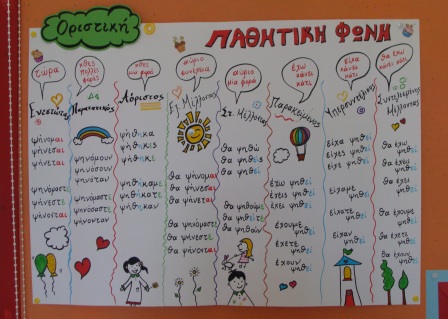 Οριστική
ΠΑΘΗΤΙΚΗ ΦΩΝΗ
τώρα
χθες πολλές φορές
χθες μία φορά
αύριο συνέχεια
αύριο μία φορά
έχω κάνει κάτι
είχα κάνει κάτι
θα έχω κάνει κάτι
Ενεστώτας
Παρατατικός
Αόριστος
Εξ. Μέλλοντας
Στ. Μέλλοντας
Παρακείμενος
Υπερσυντέλικος
Συντελεσμένος Μέλλοντας
ψήνομαι
ψήνεσαι
ψήνεται
ψηνόμαστε
ψήνεστε
ψήνονται
ψηνόμουν
ψηνόσουν
ψηνόταν
ψηνόμαστε
ψηνόσαστε
ψήνονταν
ψήθηκα
ψήθηκες
ψήθηκε
ψηθήκαμε
ψηθήκατε
ψήθηκαν
θα ψήνομαι
θα ψήνεσαι
θα ψήνεται
θα ψηνόμαστε
θα ψήνεστε
θα ψήνονται
θα ψηθώ
θα ψηθείς
θα ψηθεί
θα ψηθούμε
θα ψηθείτε
θα ψηθούν
έχω ψηθεί
έχεις ψηθεί
έχει ψηθεί
έχουμε ψηθεί
έχετε ψηθεί
έχουν ψηθεί
είχα ψηθεί
είχες ψηθεί
είχε ψηθεί
είχαμε ψηθεί
είχατε ψηθεί
είχαν ψηθεί
θα έχω ψηθεί
θα έχεις ψηθεί
θα έχει ψηθεί
θα έχουμε ψηθεί
θα έχετε ψηθεί
θα έχουν ψηθεί